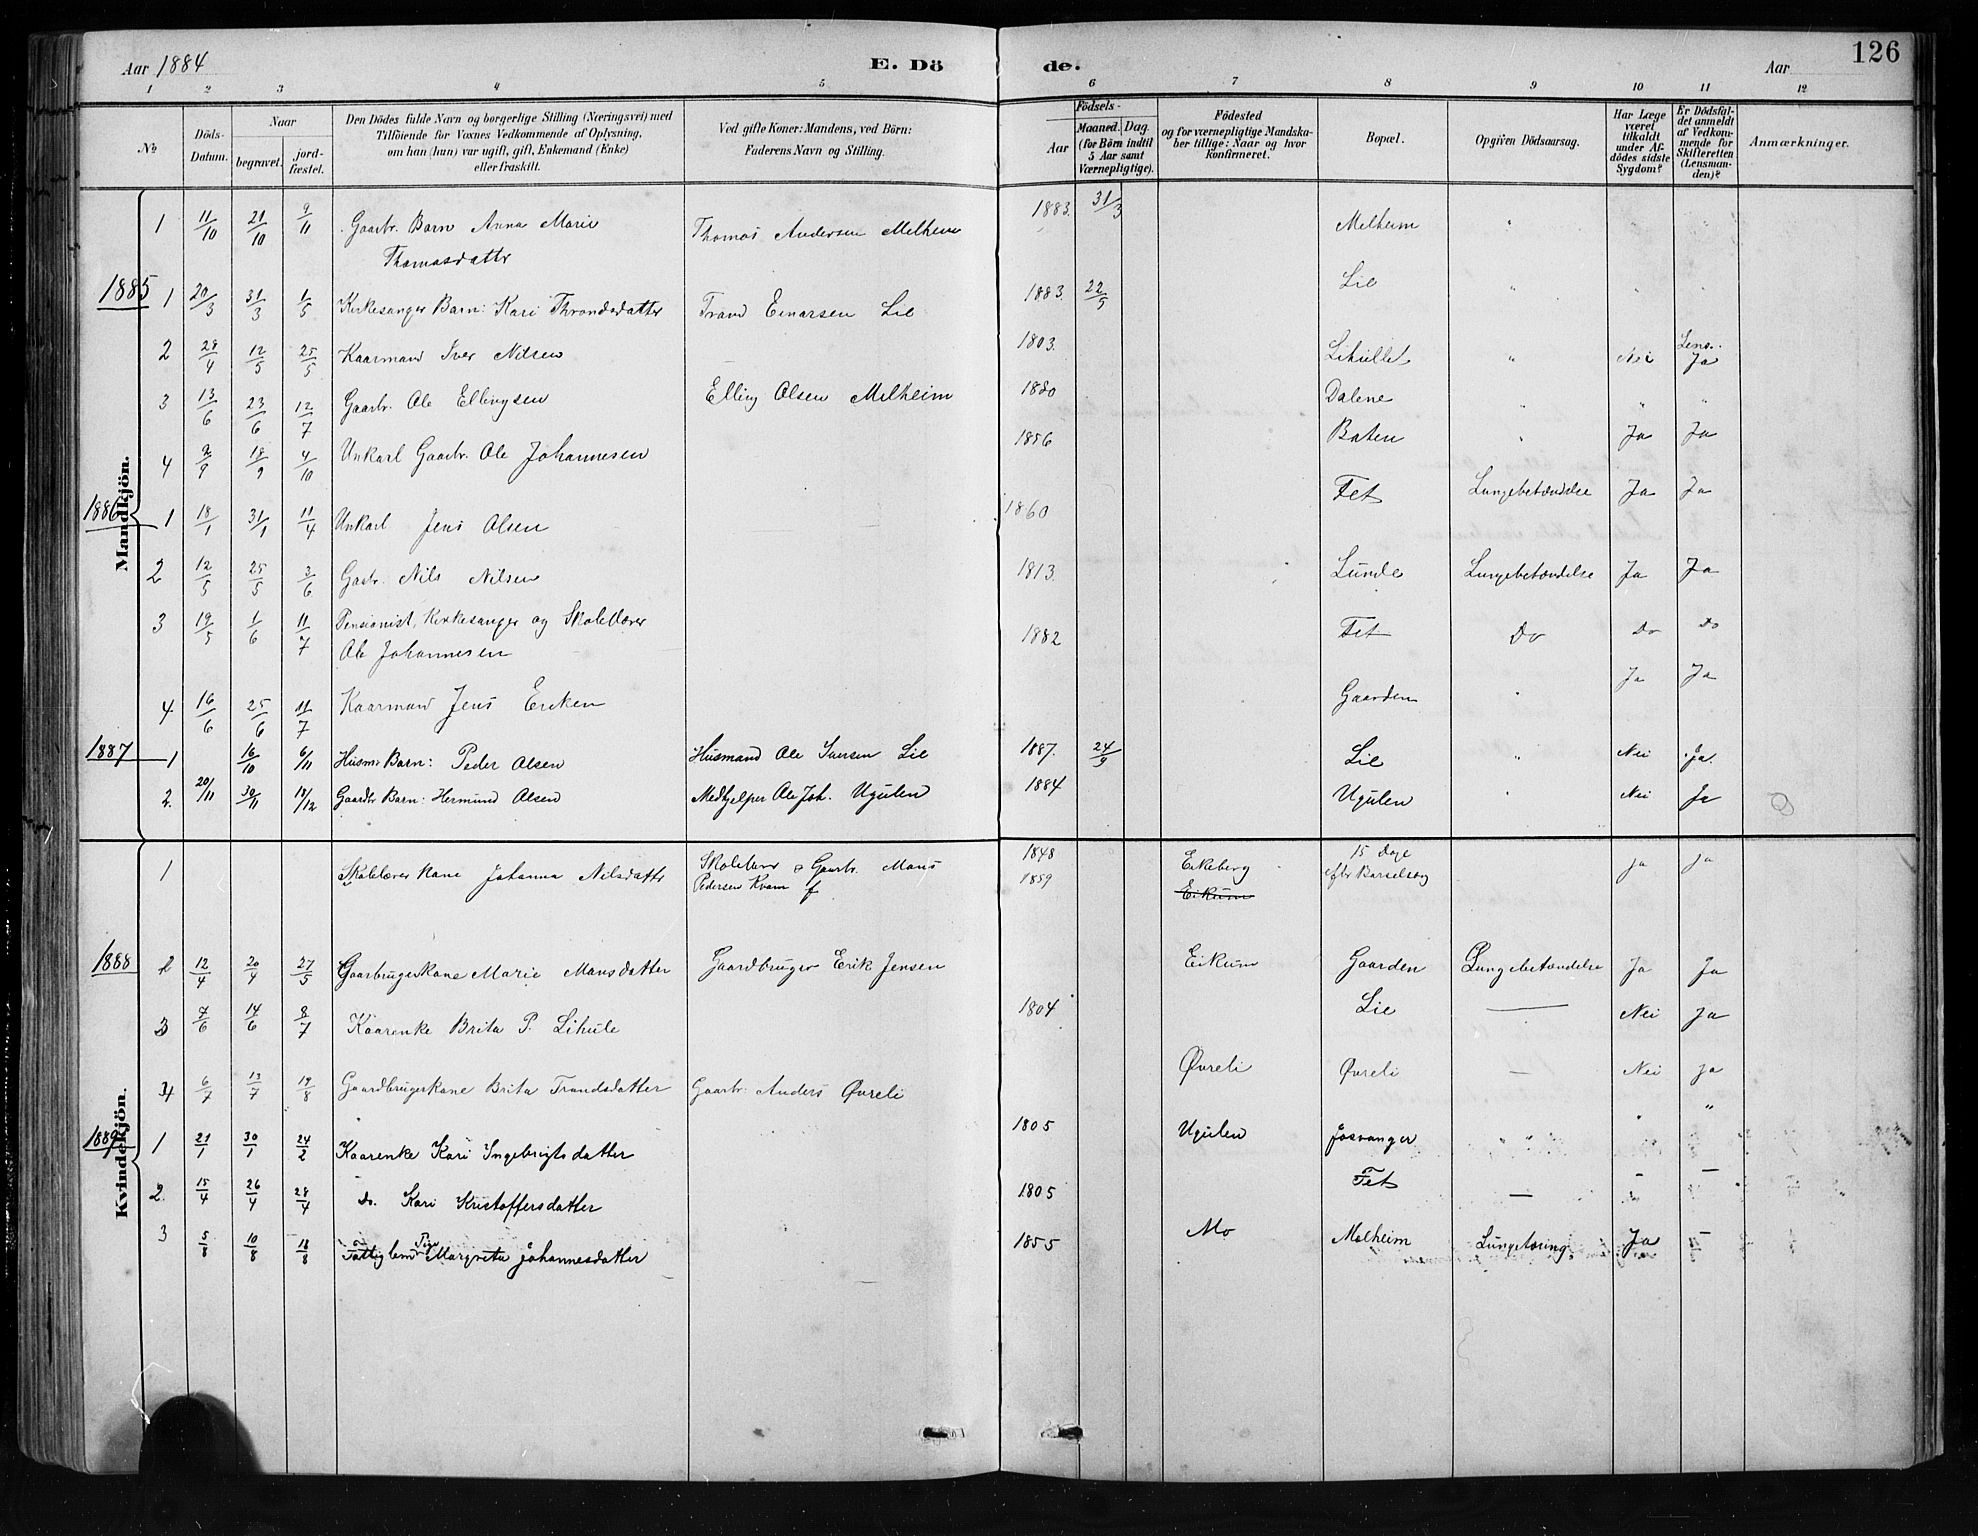 Aar 1884 E. Dö de. Aar 126
1 2 3 4 5 6 7 8 9 10 11 12
No
Döds-Datum.
Naar
begravet.
jord-fæstet.
Den Dödes fulde Navn og borgerlige Stilling (Næringsvei) med
Tilföiende for Voxnes Vedkommende af Oplysning,
om han (hun) var ugift, gift, Enkemand (Enke)
eller fraskilt.
Ved gifte Koner: Mandens, ved Börn:
Faderens Navn og Stilling.
Födsels-
Aar
Maaned. Dag.
(for Börn indtil
5 Aar samt
Værnepligtige).
Födested
og for værnepligtige Mandska-
ber tillige: Naar og hvor
konfirmeret.
Bopæl.
Opgiven Dödsaarsag.
Har Læge
været
tilkaldt
under Af-
dödes sidste
Sygdom?
Er Dödsfal-
det anmeldt
af Vedkom-
mende for
Skifteretten
(Lensman-
den)?
Anmærkninger.
Mandkjön.
1 11/10 21/10 9/11 Gaarbr. Barn Anna Marie Thomas Andersen Melheim 1883. 31/3 Melheim " " "
Thomasdattr
1885 1 20/3 31/3 1/5 Kirkesanger Barn: Kari Throndsdatter Trond Einarsen Lie 1883. 22/5 Lie " " "
2 28/4 12/5 25/5 Kaarmand Iver Nilsen 1803. Lihullet " Nei Lens. Ja
3 13/6 23/6 12/7 Gaarbr. Ole Ellingsen Elling Olsen Melheim 1880 Dalene " " "
4 2/9 18/9 4/10 Unkarl Gaarbr. Ole Johannesen 1856 Baten " Ja Ja
1886 1 18/1 31/1 11/4 Unkarl Jens Olsen 1860 Fet Lungebetændelse Ja Ja
2 12/5 25/5 3/6 Gaabr. Nils Nilsen 1813. Lunde Lungebetændelse Ja Ja
3 19/5 1/6 11/7 Pensionist, Kirkesanger og Skolelærer
Ole Johannesen 1882 Fet Do Do Do
4 16/6 25/6 11/7 Kaarmand Jens Eriken Gaarden " Ja Ja
1887 1 16/10 6/11 Husm. Barn: Peder Olsen Husmand Ole Iversen Lie 1887. 24/9 Lie " Nei Ja.
2. 20/11 30/11 18/12 Gaardbr Barn: Hermund Olsen Medhjelper Ole Joh. Ugulen 1884 Ugulen " Nei Ja
Kvindekjön.
1 Skolelærer Kone Johanna Nilsdattr Skolelærer & Gaarbr. Mons 1848 Eikeberg 15 Dage ja ja
Pedersen Kvam 1859 Eikum efter Barselseng
1888 2 12/4 20/4 27/5 Gaarbrugerkone Marie Monsdatter Gaardbruger Erik Jensen Eikum Gaarden Lungebetændelse Ja Ja
3 7/6 14/6 8/7 Kaarenke Brita P. Lihule 1804 Lie — Nei Ja
4 6/7 13/7 19/8 Gaardbrugerkone Brita Trondsdatter Gaarbr: Anders Øvreli Øvreli Øvreli — Nei ja
1889 1 21/1 30/1 24/2 Kaarenke Kari Ingebrigtsdatter 1805 Ugulen Josvanger " " " "
2. 15/4 26/4 28/4 do. Kari Kristoffersdatter 1805 Fet — – –
3 5/8 10/8 18/8 Fattiglem Pige Margreta Johannesdatter 1855 Mo Melheim Lungetæring Ja –